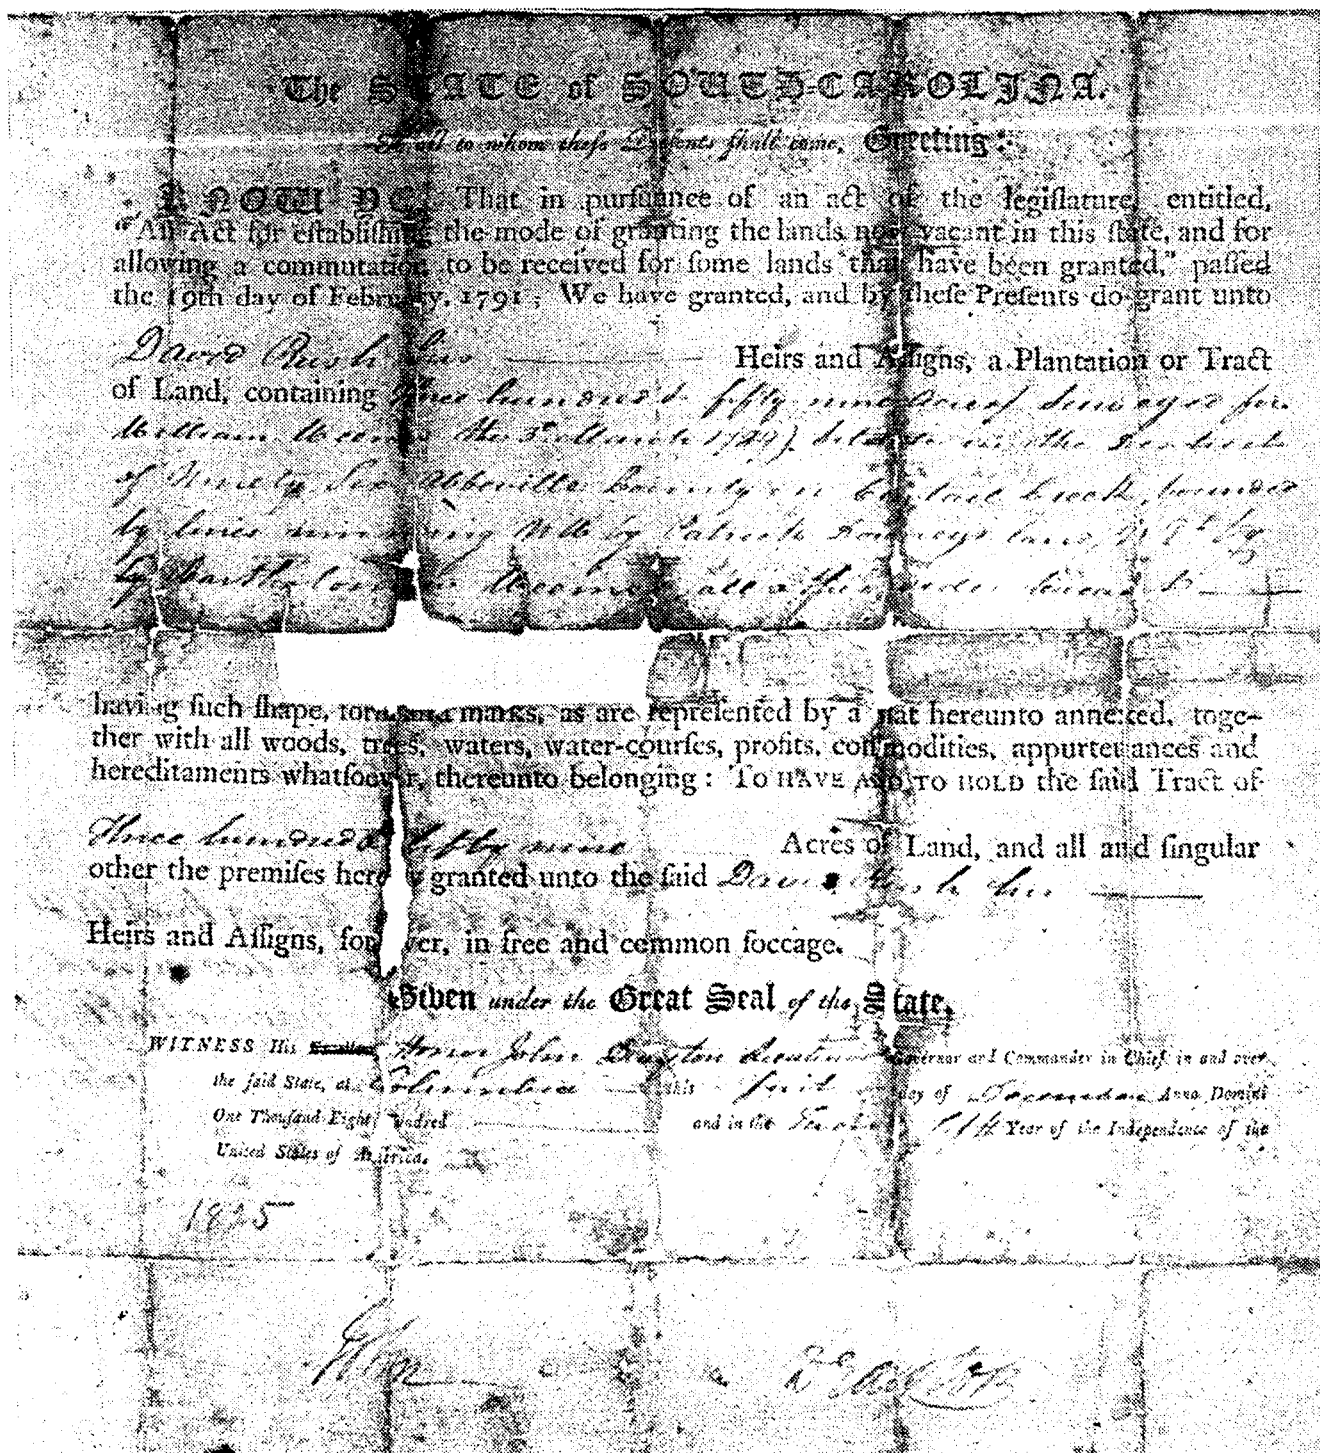 The STATE of SOUTH-CAROLINA.
To all to whom theſe Preſents ſhall come, Greeting:
KNOW YE, That in purſuance of an act of the legiſlature, entitled,
“An Act for eſtabliſhing the mode of granting the lands now vacant in this ſtate, and for
allowing a commutation to be received for ſome lands that have been granted,” paſſed
the 19th day of February, 1791; We have granted, and by theſe Preſents do grant unto
David Rush his Heirs and Aſſigns, a Plantation or Tract
of Land, containing Three hundred fifty nine Acres surveyed for
William the 3d March 1789) in the District
of Ninety Six Abbeville County on creek, bounded
by lines running by Patrick land, by
by all other sides vacant
having ſuch ſhape, form and marks, as are repreſented by a plat hereunto annexed, toge-
ther with all woods, trees, waters, water-courſes, profits, commodities, appurtenances and
hereditaments whatſoever, thereunto belonging: TO HAVE AND TO HOLD the ſaid Tract of
Three hundred fifty nine Acres of Land, and all and ſingular
other the premiſes hereby granted unto the ſaid David Rush his
Heirs and Aſſigns, for ever, in free and common ſoccage.
Given under the Great Seal of the State.
WITNESS His Honor John Drayton Lieutenant Governor and Commander in Chief in and over
the ſaid State, at Columbia this day of Anno Domini
One Thouſand Eight Hundred and in the Twenty Year of the Independence of the
United States of America.
1825